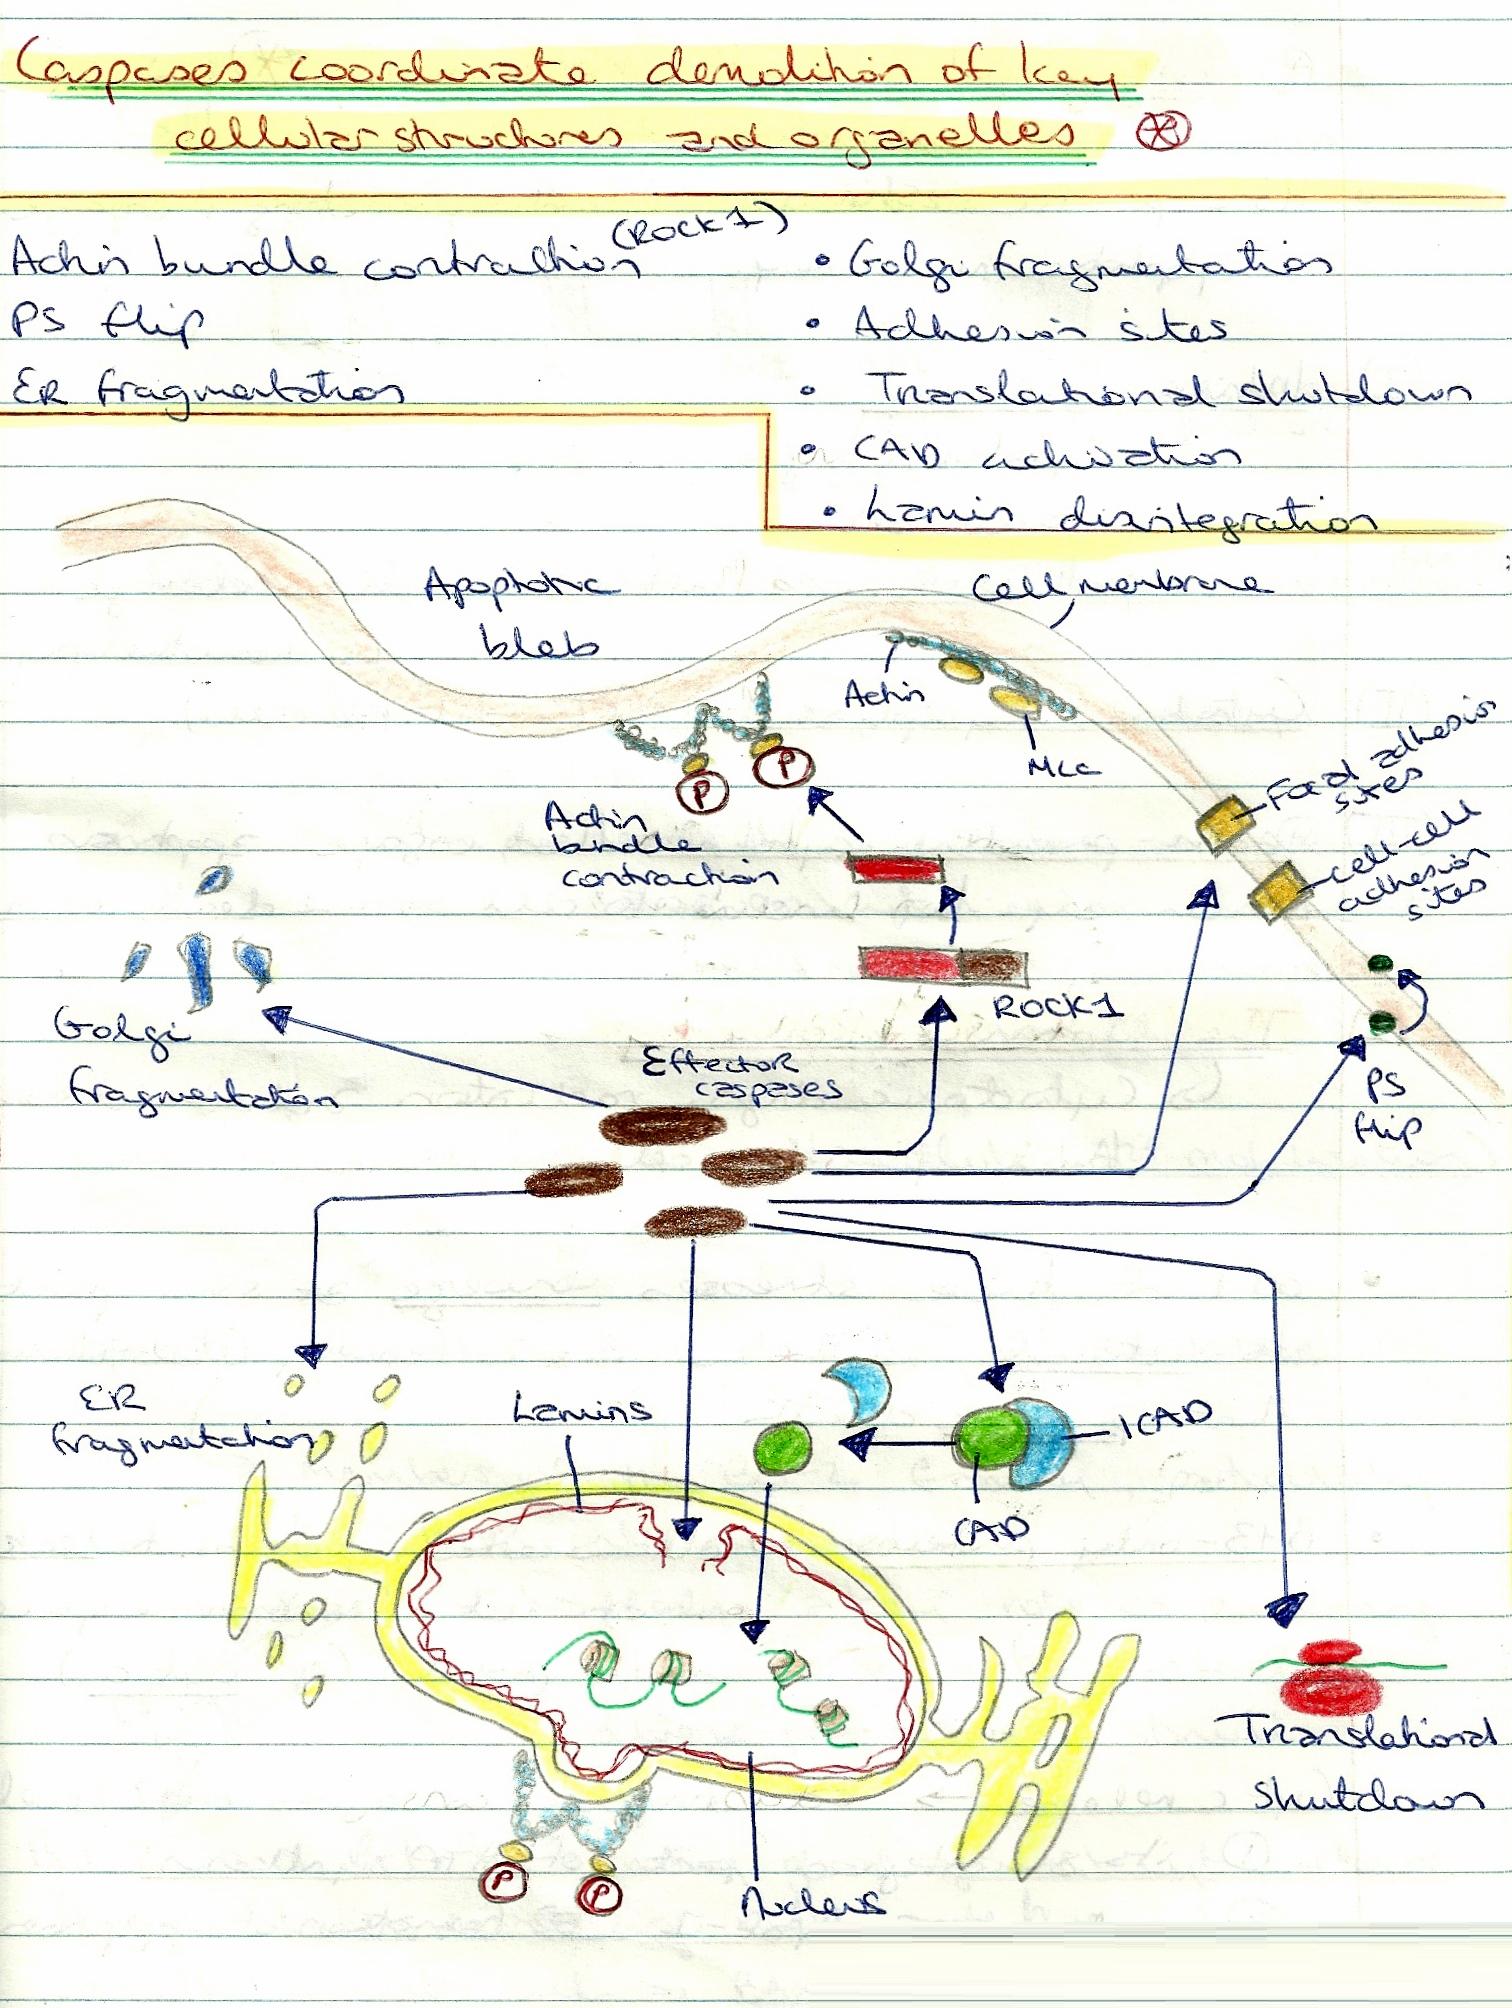 Caspases coordinate demolition of key
cellular structures and organelles
Actin bundle contraction (ROCK1)
PS flip
ER fragmentation
• Golgi fragmentation
• Adhesion sites
• Translational shutdown
• CAD activation
• Lamin disintegration
Apoptotic
bleb
Cell membrane
Actin
MLC
Focal adhesion
sites
cell-cell
adhesion
sites
P
P
Actin
bundle
contraction
ROCK1
Golgi
fragmentation
Effector
caspases
PS
flip
ER
fragmentation
Lamins
ICAD
CAD
Translational
shutdown
P
P
Nucleus